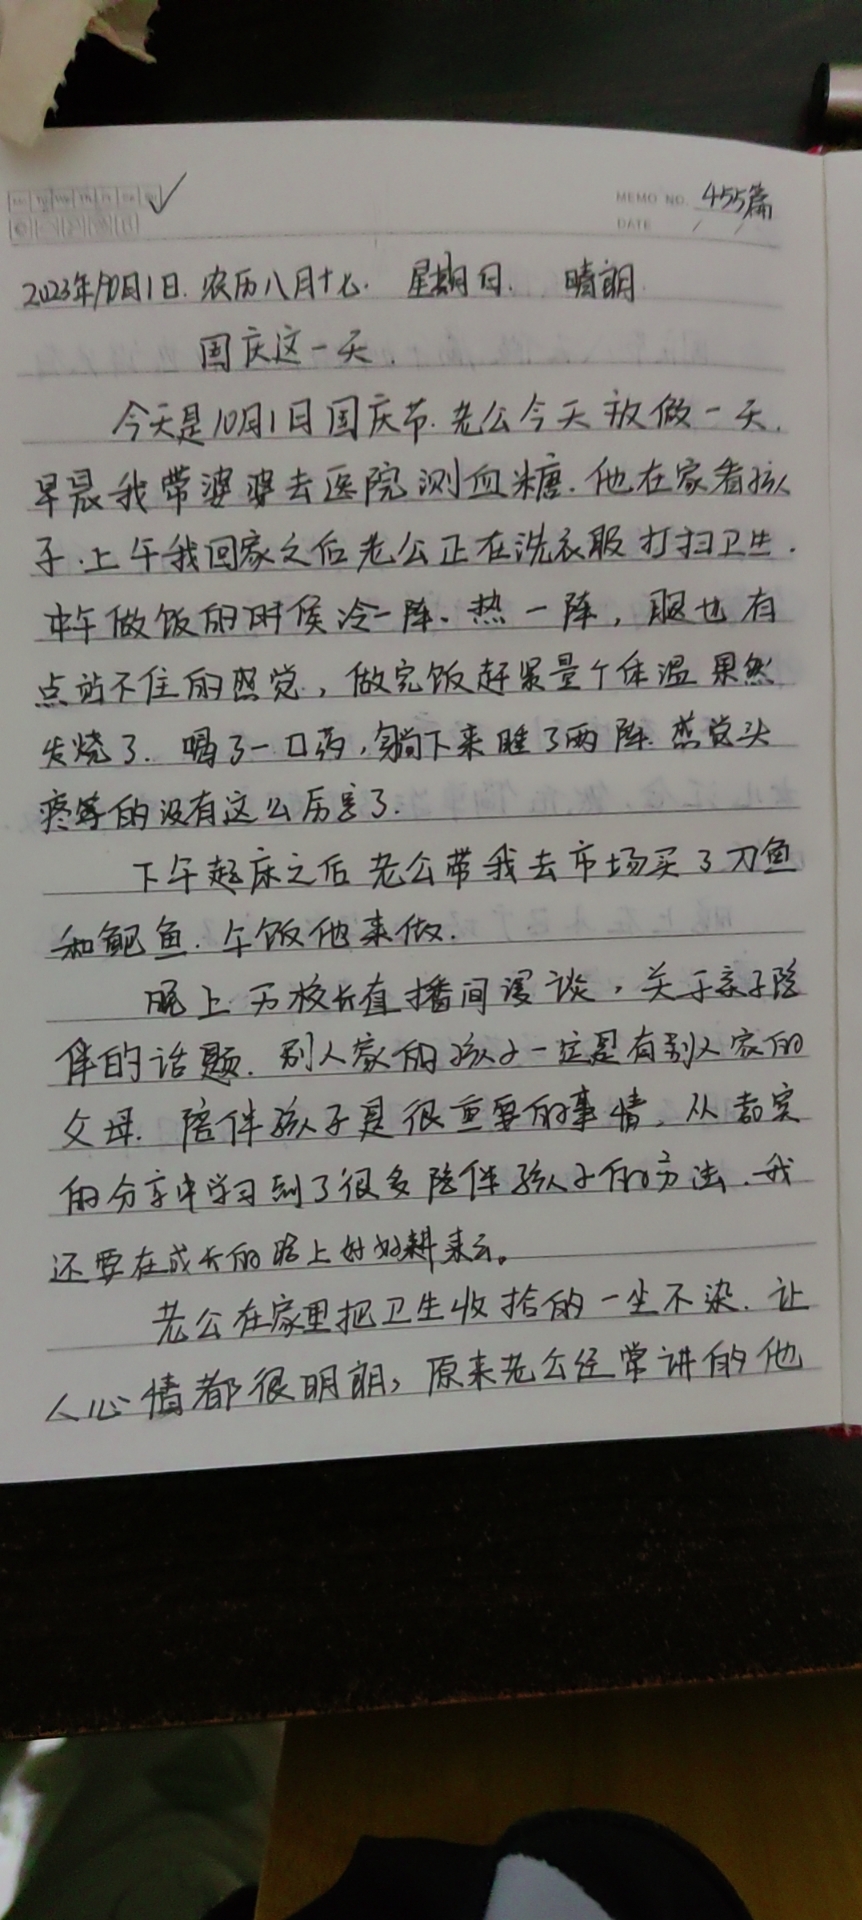 MEMO NO. 455篇
DATE / /
2023年10月1日. 农历八月十七. 星期日. 晴朗
国庆这一天.
今天是10月1日国庆节.老公今天放做一天.
早晨我带婆婆去医院测血糖.他在家看孩
子.上午我回家之后老公正在洗衣服打扫卫生.
中午做饭的时候冷一阵.热一阵,腿也有
点站不住的感觉,做完饭赶紧量个体温果然
发烧了.喝了一口药,躺下来睡了两阵.感觉头
疼等的没有这么厉害了.
下午起床之后老公带我去市场买了刀鱼
和鲍鱼.午饭他来做.
晚上万校长直播间漫谈,关于亲子陪
伴的话题.别人家的孩子一定是有别人家的
父母.陪伴孩子是很重要的事情,从 
的分享中学习到了很多陪伴孩子的方法.我
还要在成长的路上好好耕耘。
老公在家里把卫生收拾的一尘不染.让
人心情都很明朗,原来老公经常讲的他